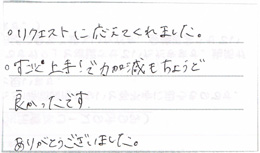 ○リクエストに応えてくれました。
○すごく上手!で力加減もちょうど
良かったです
ありがとうございました。